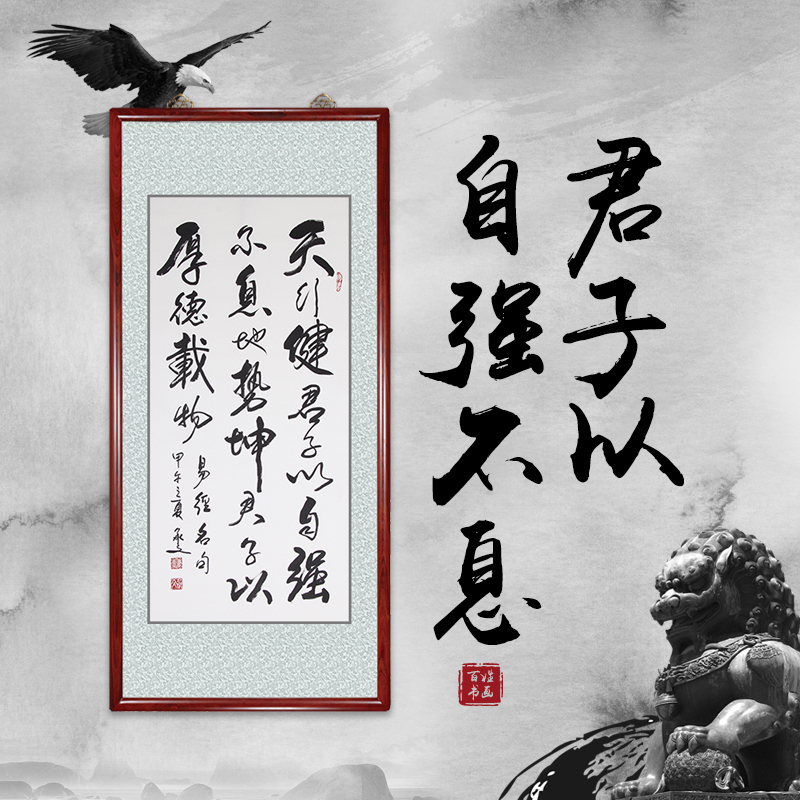 君子以
自强不息
百姓
书画
天行健君子以自强
不息地势坤君子以
厚德载物
易经名句
甲午之夏